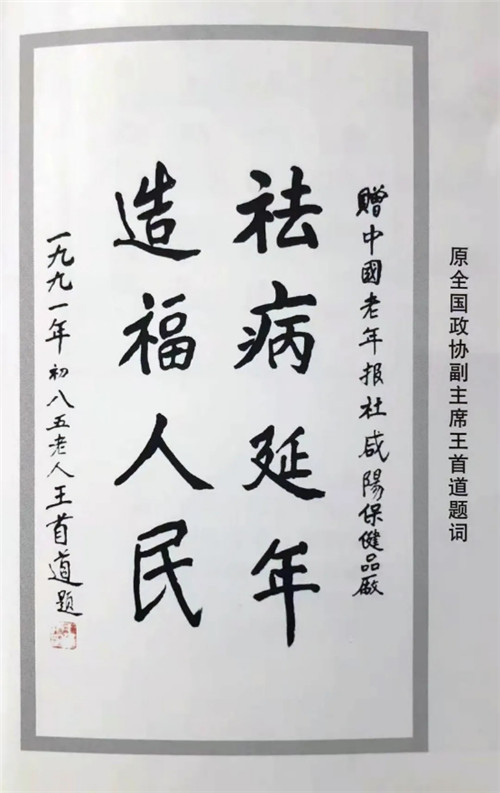 原全国政协副主席王首道题词
赠中國老年报社咸陽保健品厰
祛病延年
造福人民
一九九一年初八五老人王首道題